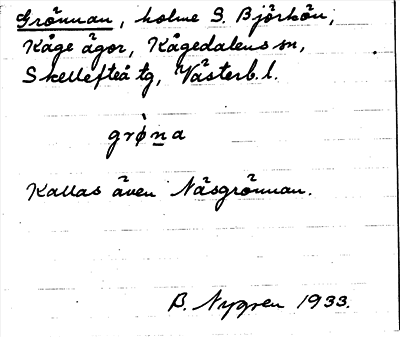 Grönnan, holme S. Björkön,
Kåge ägor, Kågedalens sn,
Skellefteå tg, Västerb. l.
grø̀na
Kallas även Näsgrönnan.
B. Nygren 1933.